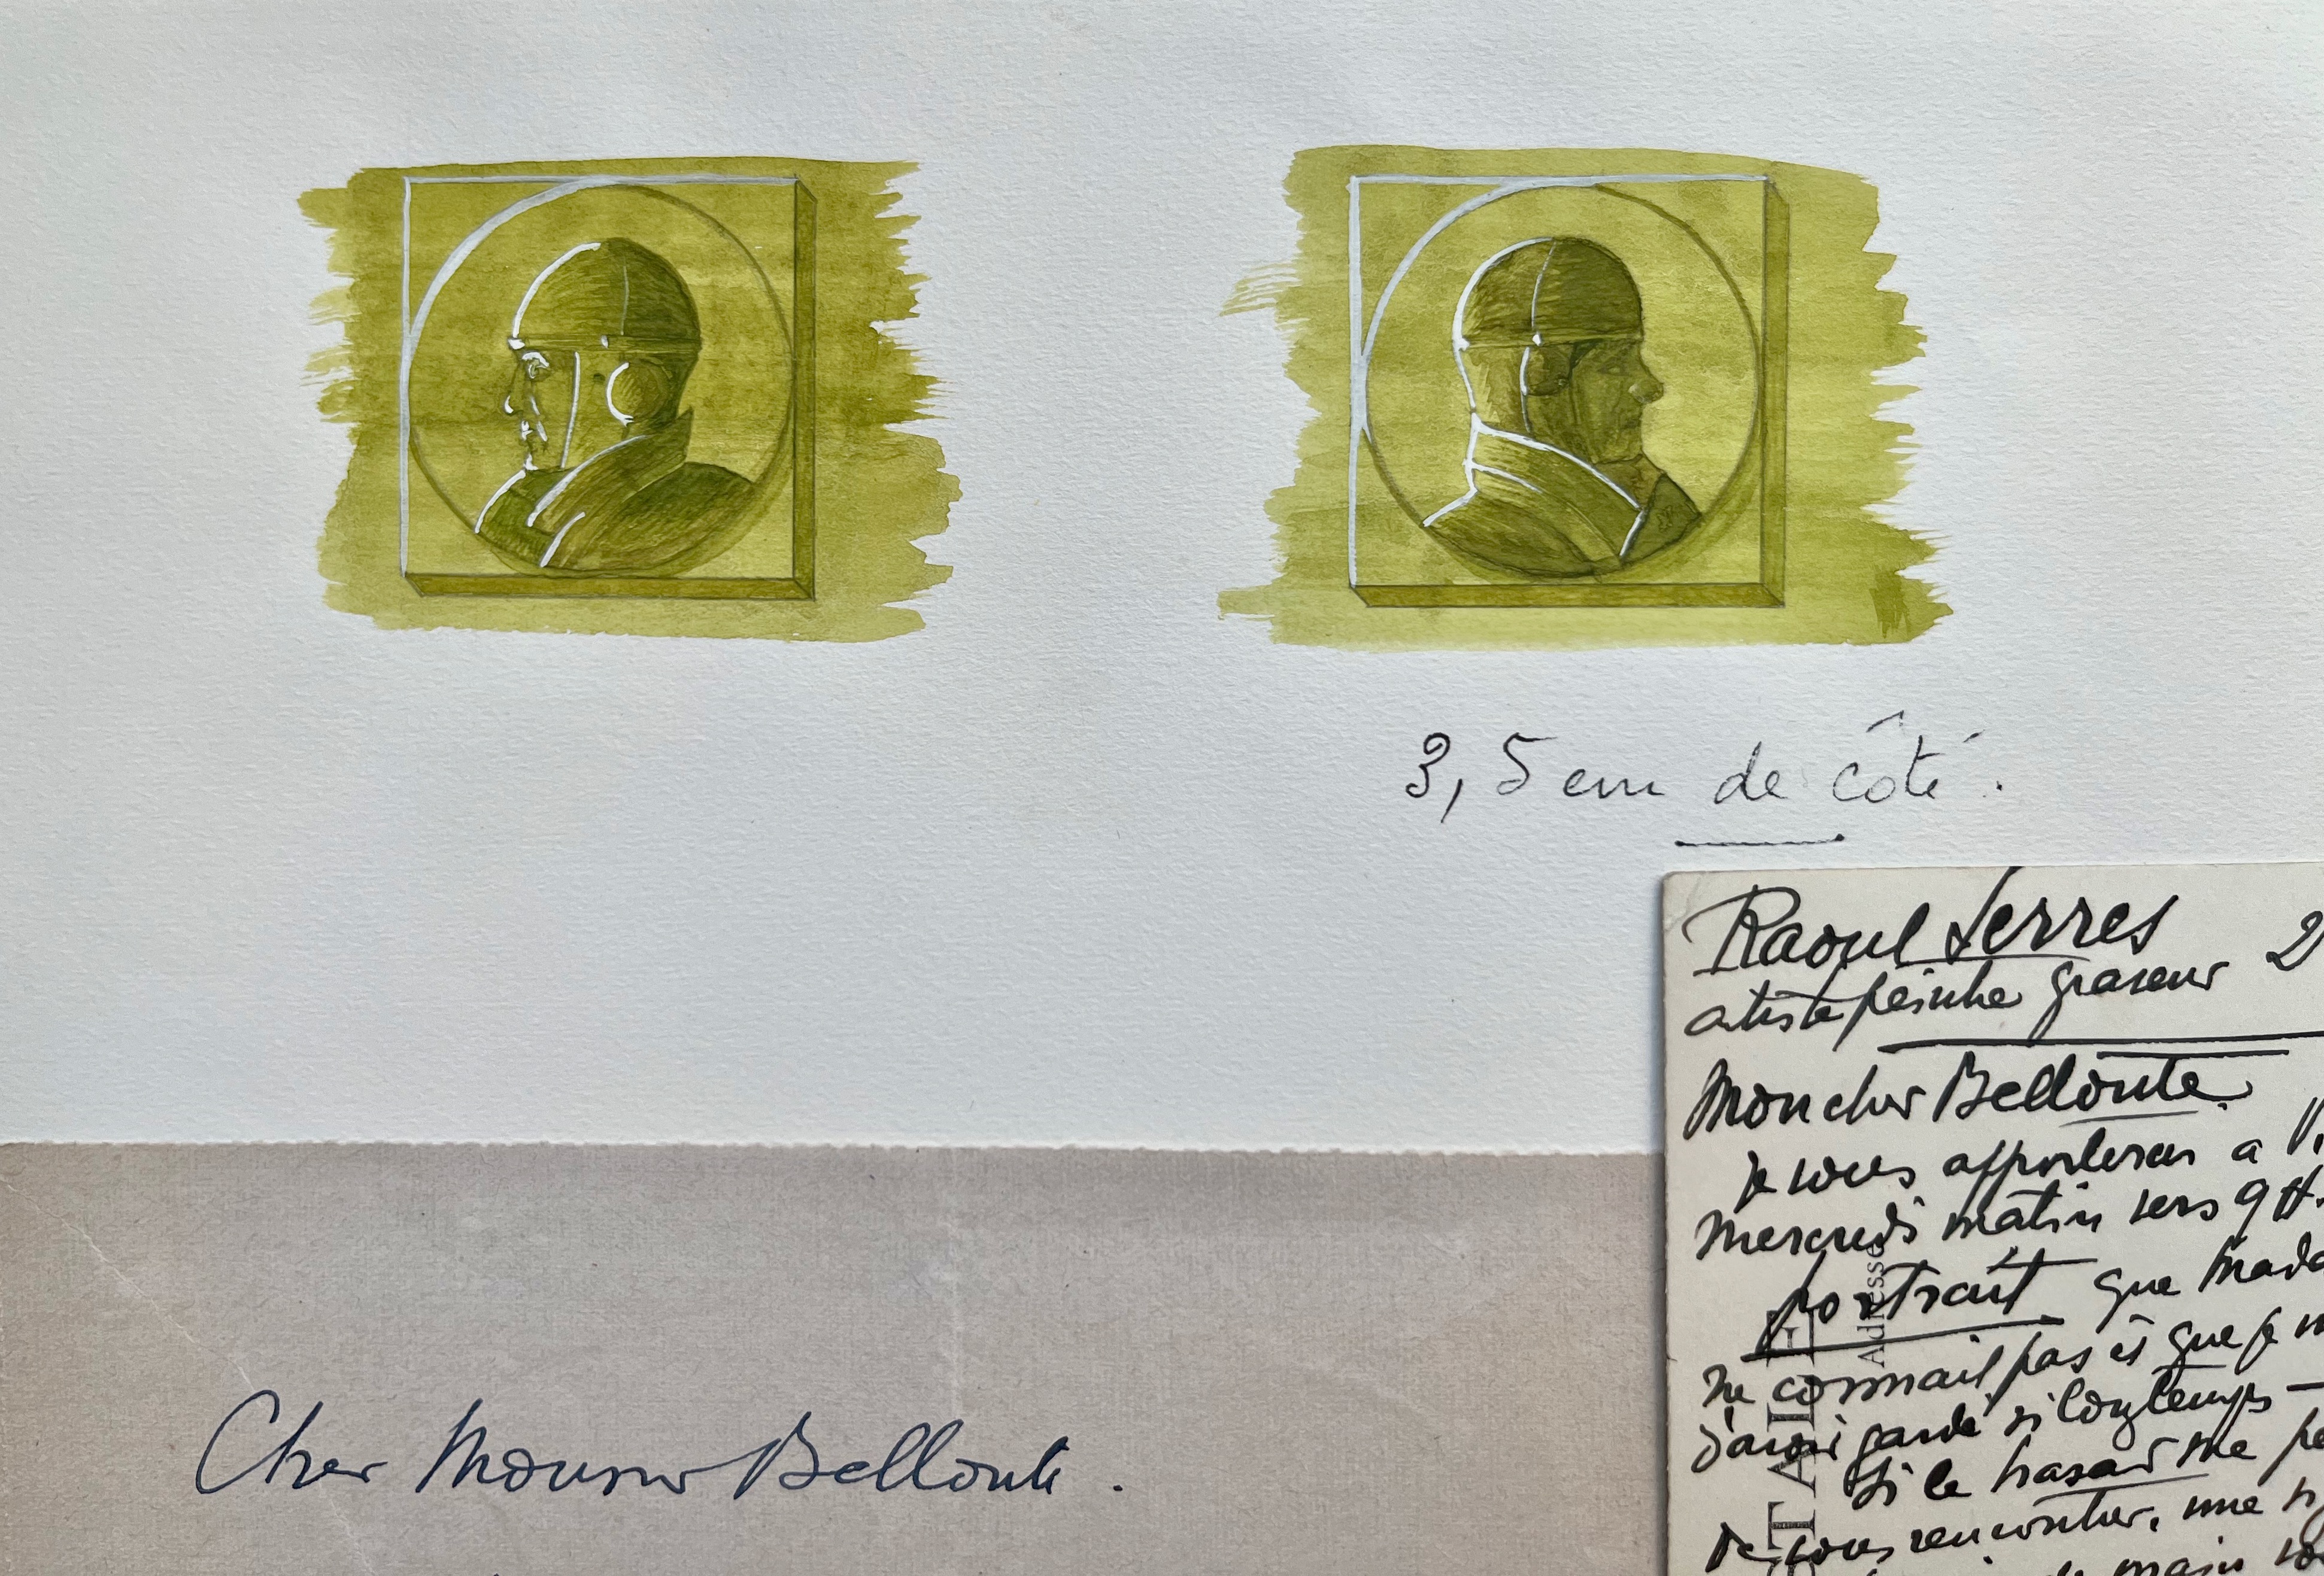 3,5 cm de côté.
Raoul Serres 2
artiste peintre graveur
Mon cher Bellonte.
je vous apporterai a
mercredi matin vers 9H.
portrait que Mada
ne connait pas et que je m
d'avoir gardé si longtemps –
Si le hasard me pe
De vous rencontrer, une si
main
Adresse
STALE
Cher Monsieur Bellonte.